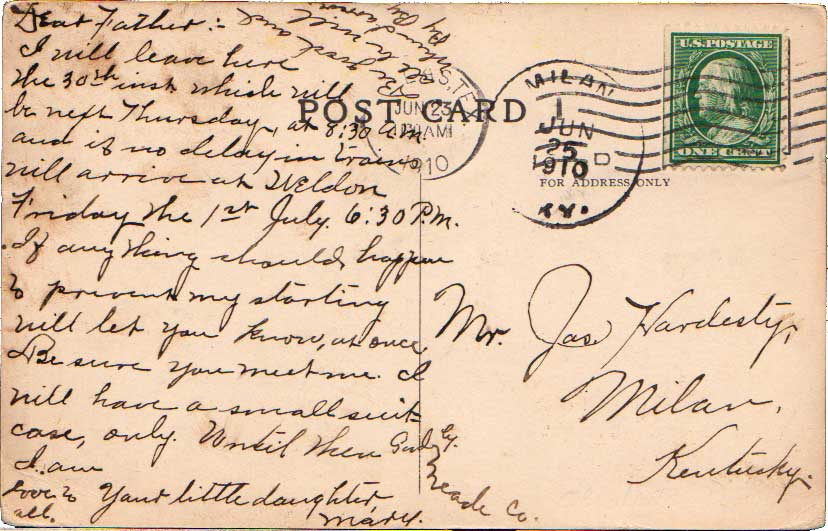 Dear Father:-
I will leave here
the 30th inst which will
be next Thursday, at 8:30 a.m.
and if no delay in trains
will arrive at Weldon
Friday the 1st July. 6:30 P.M.
If anything should happen
to prevent my starting
will let you know, at once.
Be sure you meet me. I
will have a small suit-
case, only. Until then
I am
Love to Your little daughter,
all. Mary.
POST CARD
JUN 23
AM
1910
MILAN
1
JUN
25
1910
KY.
FOR ADDRESS ONLY
U.S. POSTAGE
ONE CENT
Mr. Jas Hardesty,
Milan,
Kentucky.
Meade Co.